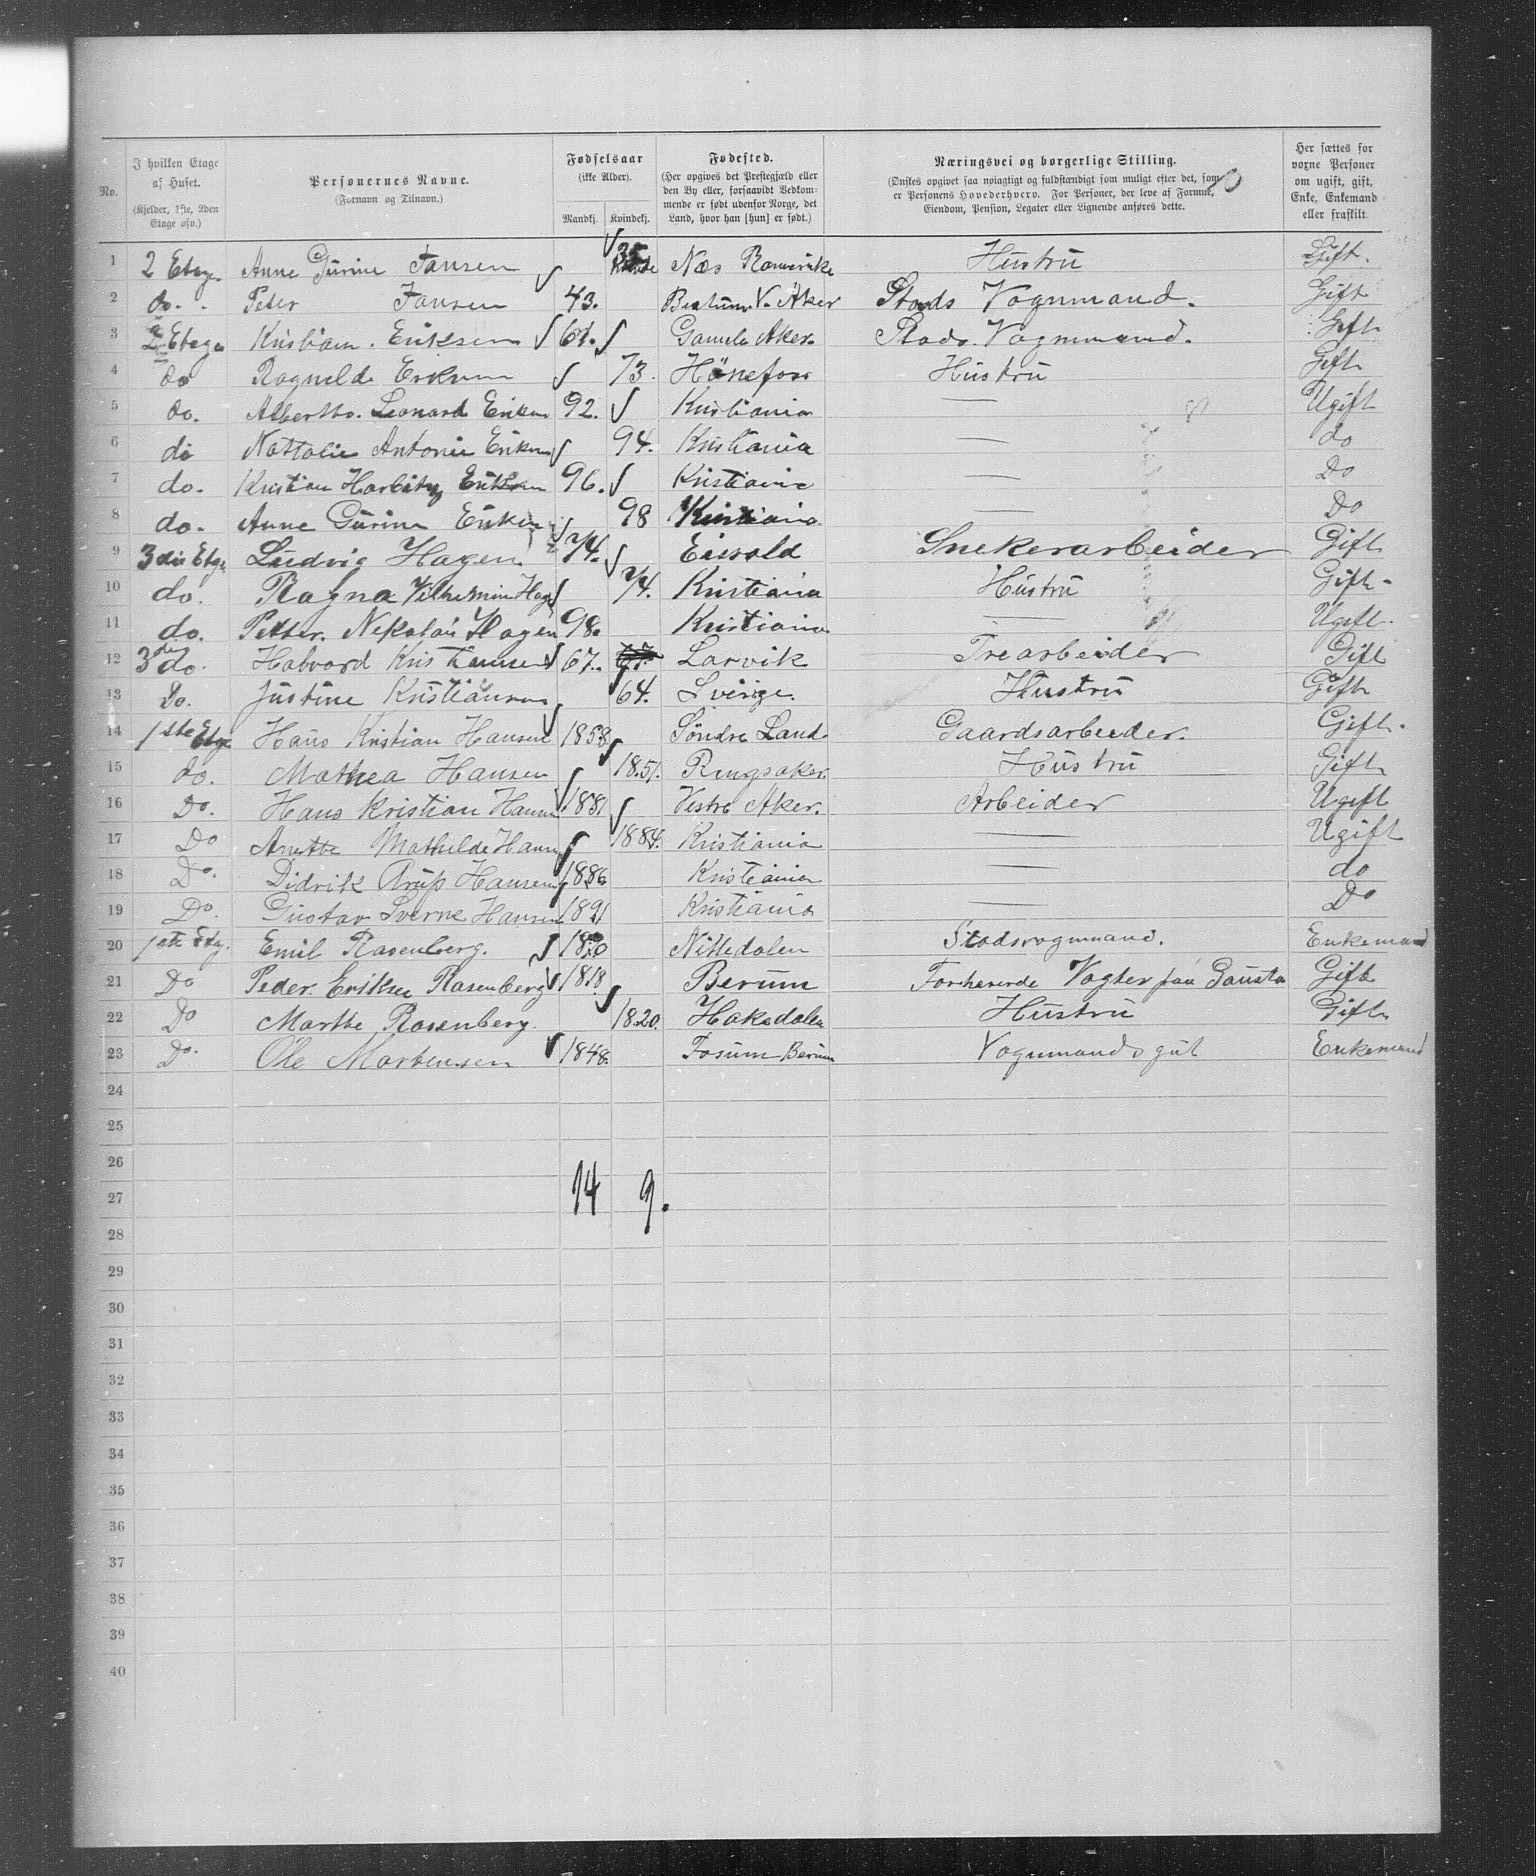 No. I hvilken Etage af Huset. (Kjelder, 1ste, 2den Etage osv.) Personernes Navne. (Fornavn og Tilnavn.) Fødselsaar (ikke Alder). Mandkj. Kvindekj. Fødested. (Her opgives det Prestegjæld eller den By eller, forsaavidt Vedkommende er født udenfor Norge, det Land, hvor han [hun] er født.) Næringsvei og borgerlige Stilling. (Ønskes opgivet saa nøiagtigt og fuldstændigt som muligt efter det, som er Personens Hovederhverv. For Personer, der leve af Formue, Eiendom, Pension, Legater eller Lignende anføres dette. Her sættes for voxne Personer om ugift, gift, Enke, Enkemand eller fraskilt.
1 2 Etage Anne Gurine Jansen 35 Næs Romerike Hustru Gift.
2 do. Peter Jansen 43. V. Aker Stads Vognmand. Gift
3 2 Etage Kristian. Eriksen 61. Gamle Aker. Stads. Vognmand. Gift
4 do Ragnelde Eriksen 73. Hönefoss Hustru Gift
5 do. Leonard Eriksen 92. Kristiania — Ugift
6 do Nattalie Antonie Eriksen 94. Kristiania — do
7 do. Kristian Eriksen 96. Kristiania — Do
8 do. Anne Gurine Eriksen 98 Kristiania — Do
9 3die Etge Ludvig Hagen 74. Eisvold Snekerarbeider Gift
10 do. Ragna Vilhelmine Hage 74. Kristiania Hustru Gift-
11 do. Petter. Nikolai Hagen 98. Kristiania — Ugift.
12 3die do. Halvard Kristiansen 67. Larvik Trearbeider Gift
13 Do. Justine Kristiansen 64. Sverige. Hustru Gift
14 1ste Etge Hans Kristian Hansen 1858 Söndre Land Gaardsarbeider. Gift.
15 do. Mathea Hansen 1851. Ringsaker. Hustru Gift
16 Do. Hans Kristian Hansen 1881 Vestre Aker. Arbeider Ugift
17 Do Anette Mathilde Hansen 1884. Kristiania — Ugift
18 Do. Didrik Hansen 1886 Kristiania — do
19 Do. Gustav Sverne Hansen 1891 Kristiania — Do
20 1ste Etg. Emil Rasenberg. Nittedalen Stadsvognmand. Enkemand
21 Do Peder. Eriksen Rasenberg 1818 Berum Forhenværende Vogter paa Gausta Gift
22 Do Marthe Rosenberg. 1820. Hakadalen Hustru Gift
23 Do. Ole Mortensen 1848. Fosum Berum Vognmandsgut Enkemand
24
25
26
27 14 9.
28
29
30
31
32
33
34
35
36
37
38
39
40